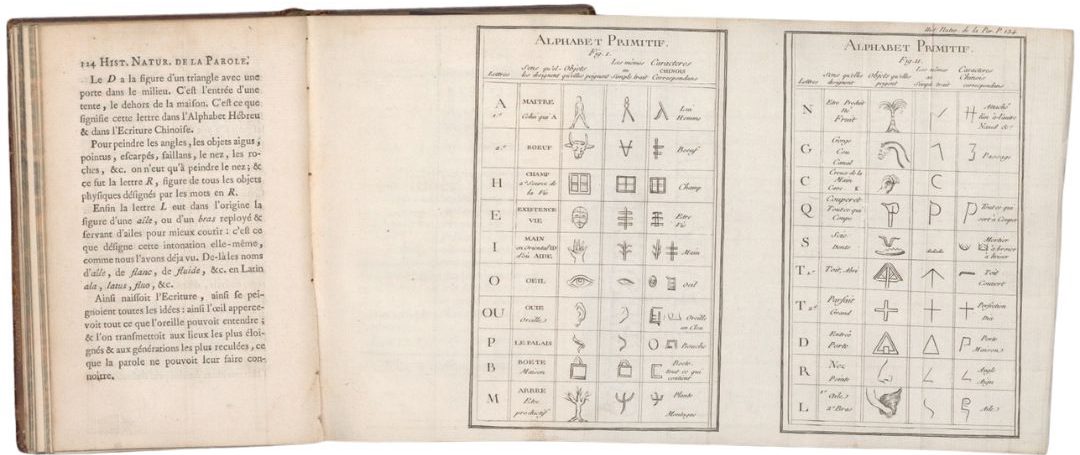 124 HIST. NATUR. DE LA PAROLE.
Le D a la figure d'un triangle avec une
porte dans le milieu. C'est l'entrée d'une
tente, le dehors de la maison. C'est ce que
signifie cette lettre dans l'Alphabet Hébreu
& dans l'Ecriture Chinoise.
Pour peindre les angles, les objets aigus,
pointus, escarpés, saillans, le nez, les ro-
ches, &c. on n'eut qu'à peindre le nez; &
ce fut la lettre R, figure de tous les objets
physiques désignés par les mots en R.
Enfin la lettre L eut dans l'origine la
figure d'une aîle, ou d'un bras reployé &
servant d'ailes pour mieux courir: c'est ce
que désigne cette intonation elle-même,
comme nous l'avons déja vu. De-là les noms
d'aîle, de flanc, de fluide, &c. en Latin
ala, latus, fluo, &c.
Ainsi naissoit l'Ecriture, ainsi se pei-
gnoient toutes les idées: ainsi l'œil apperce-
voit tout ce que l'oreille pouvoit entendre;
& l'on transmettoit aux lieux les plus éloi-
gnés & aux générations les plus reculées, ce
que la parole ne pouvoit leur faire con-
noître.
ALPHABET PRIMITIF.
Fig. I.
Lettres Sens qu'el- les désignent Objets qu'elles peignent Les mêmes au Simple trait Caracteres CHINOIS Correspondans
A 1° MAITRE Celui qui A Homme
2° BOEUF Bœuf
H CHAMP Source de la Vie Champ
E EXISTENCE VIE Etre Vie
I MAIN en Oriental ID d'où AIDE Main
O OEIL œil
OU OUIE Oreille Oreille
P LE PALAIS Bouche
B BOETE Maison Boete tout ce qui contient
M ARBRE Etre productif Plante Montagne
Hist. Natur. de la Par. P. 124.
ALPHABET PRIMITIF.
Fig. II.
Lettres Sens qu'elles désignent Objets qu'elles peignent Les mêmes au Simple trait Caracteres Chinois correspondans
N Etre Produit Fruit Attaché
G Gorge Cou Canal Passage
C Creux de la Main
Q Couperet Tout ce qui Coupe Tout ce qui sert à Couper
S Scie Dents Mortier à broyer
T 1° Toit, Abri Toit Couvert
T 2° Parfait Grand Perfection Dix
D Entrée Porte Porte Maison
R Nez Pointe Angle Aigu
L 1° Aile 2° Bras Aile